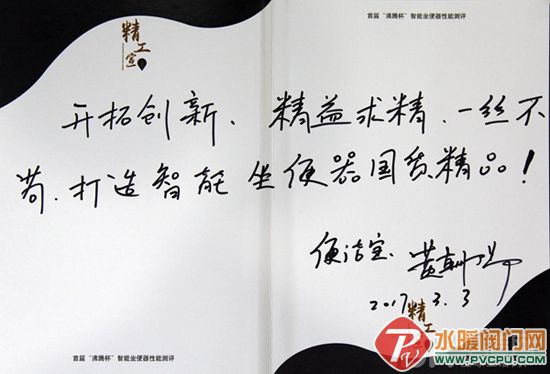 精工宝
首届“沸腾杯”智能坐便器性能测评
开拓创新、精益求精、一丝不
苟、打造智能坐便器国货精品！
便洁宝
2017.3.3
精工
首届“沸腾杯”智能坐便器性能测评
PV 水暖阀门网
WWW.PVCPU.COM